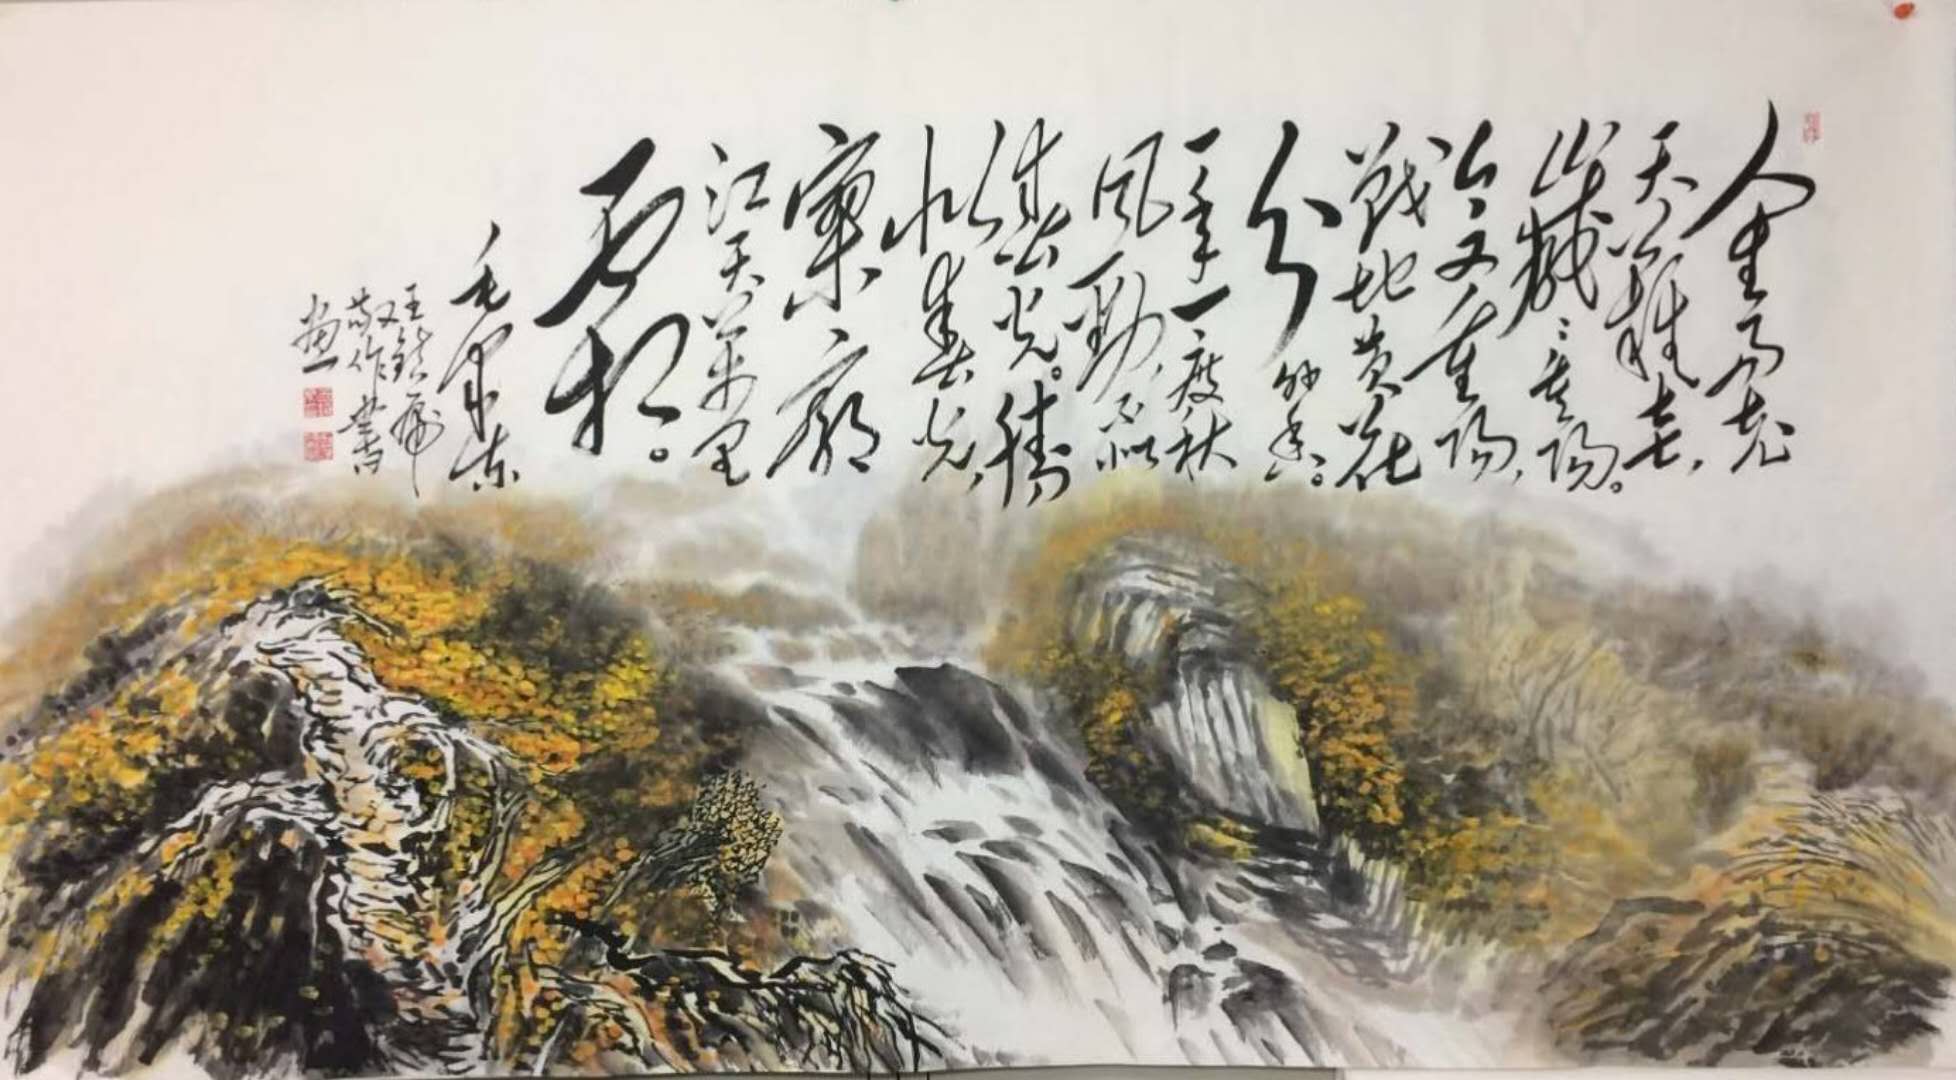 人生易老
天难老，
歲歲重阳。
今又重阳，
戰地黄花
分外香。
一年一度秋
风劲，不似
春光。勝
似春光，
寥廓
江天萬里
霜。
毛泽东
敬作書
画